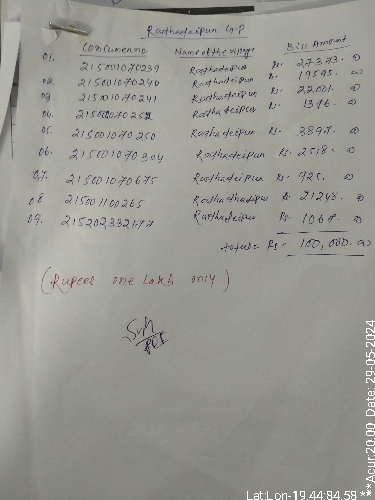 Rasthadeipun G.P
Consumerno Name of the village Bill Amount
01. 215001070239 Rasthadeipun Rs. 27373.00
02. 215001070240 Rasthadeipun Rs. 19595.00
03. 215001070241 Rasthadeipun Rs. 22001.00
04. Rasthadeipun Rs. 1376.00
05. 215001070250 Rasthadeipun Rs. 3897.00
06. 215001070304 Rasthadeipun Rs. 2518.00
07. 215001070675 Rasthadeipun Rs. 925.00
08 215001100265 Rasthadeipun Rs. 21248.00
09. 215202332177 Rasthadeipun Rs. 1067.00
total = Rs - 100,000.00
(Rupees one lakh only)
Lat:Lon-19.44:84.58 ***Acur:20.00 Date: 29-05-2024